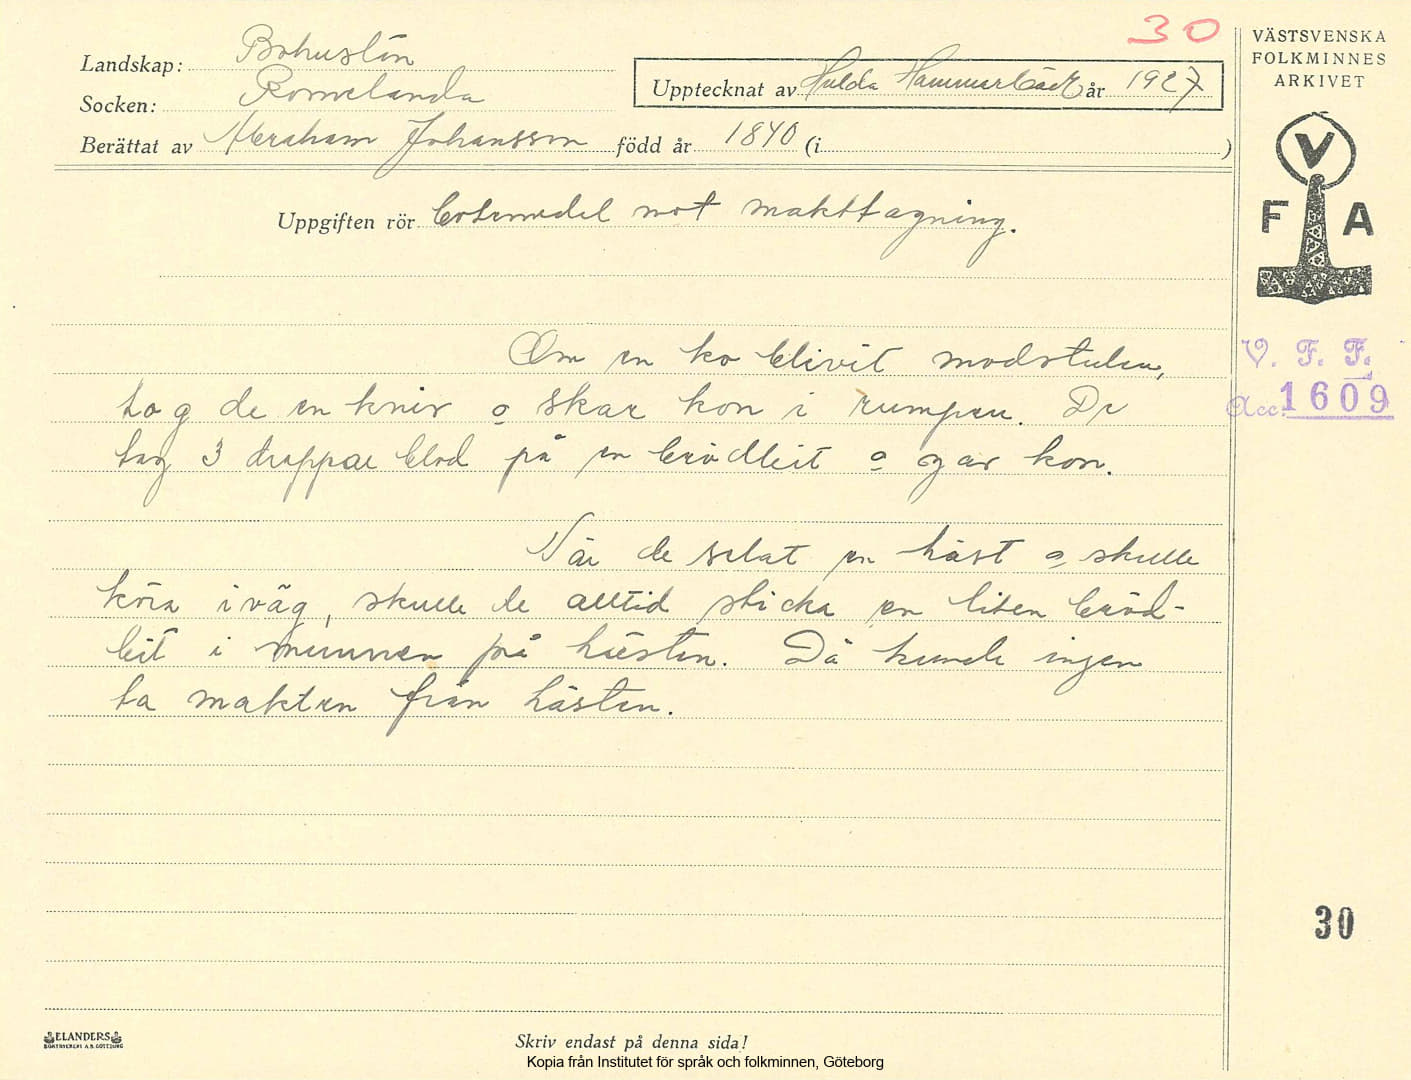 30
Landskap: Bohuslän
Socken: Romelanda
Upptecknat av Hulda Hammarbäck år 1927
Berättat av Abraham Johansson född år 1840 (i )
Uppgiften rör Botemedel mot makttagning.
Om en ko blivit modstulen,
tog de en kniv o skar kon i rumpen. De
tag 3 droppar blod på en brödbit o gav kon.
När de selat en häst o skulle
köra iväg, skulle de alltid sticka en liten bröd-
bit i munnen på hästen. Då kunde ingen
ta makten från hästen.
VÄSTSVENSKA
FOLKMINNES
ARKIVET
V
F A
V. F. F.
Acc. 1609
30
ELANDERS
BOKTRYCKERI A.B. GÖTEBORG
Skriv endast på denna sida!
Kopia från Institutet för språk och folkminnen, Göteborg